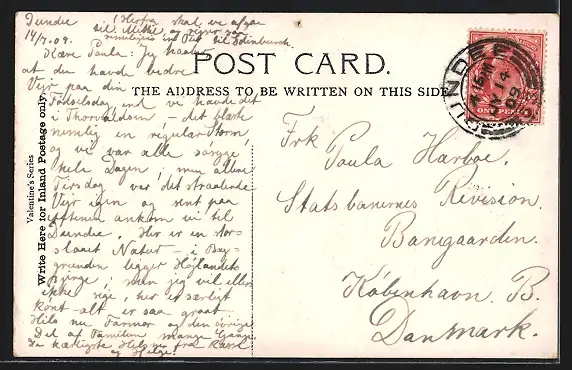 Dundee
14/7.09.
(Herfra skal vi afgaa
til Methil og rejser saa
rimeligvis en Tur til Edinburgh.
Kære Paula: Jeg haaber
at du havde bedre
Vejr paa din
Fødselsdag, end vi havde det
i Thorvaldsen – det blæste
nemlig en regulær Storm,
og vi var alle søsyge
hele Dagen; men allene
Tirsdag var det straalende
Vejr igen og sent paa
Aftenen ankom vi til
Dundee. Her er en stor-
slaaet Natur – i Bag-
grunden ligger Højlandets
Bjerge; men jeg vil ellers
ikke sige, her er særligt
kønt – alt er saa graat
Hils nu Farmor og den øvrige
Del af Familien mange Gange.
De kærligste Hilsner fra Kasse
og Helge.
POST CARD.
THE ADDRESS TO BE WRITTEN ON THIS SIDE
Valentine's Series
Write Here for Inland Postage only.
DUNDEE
4 15 PM
14
09
ONE PENNY
Frk
Paula Harboe.
Statsbanernes Revision.
Banegaarden.
København. B.
Danmark.